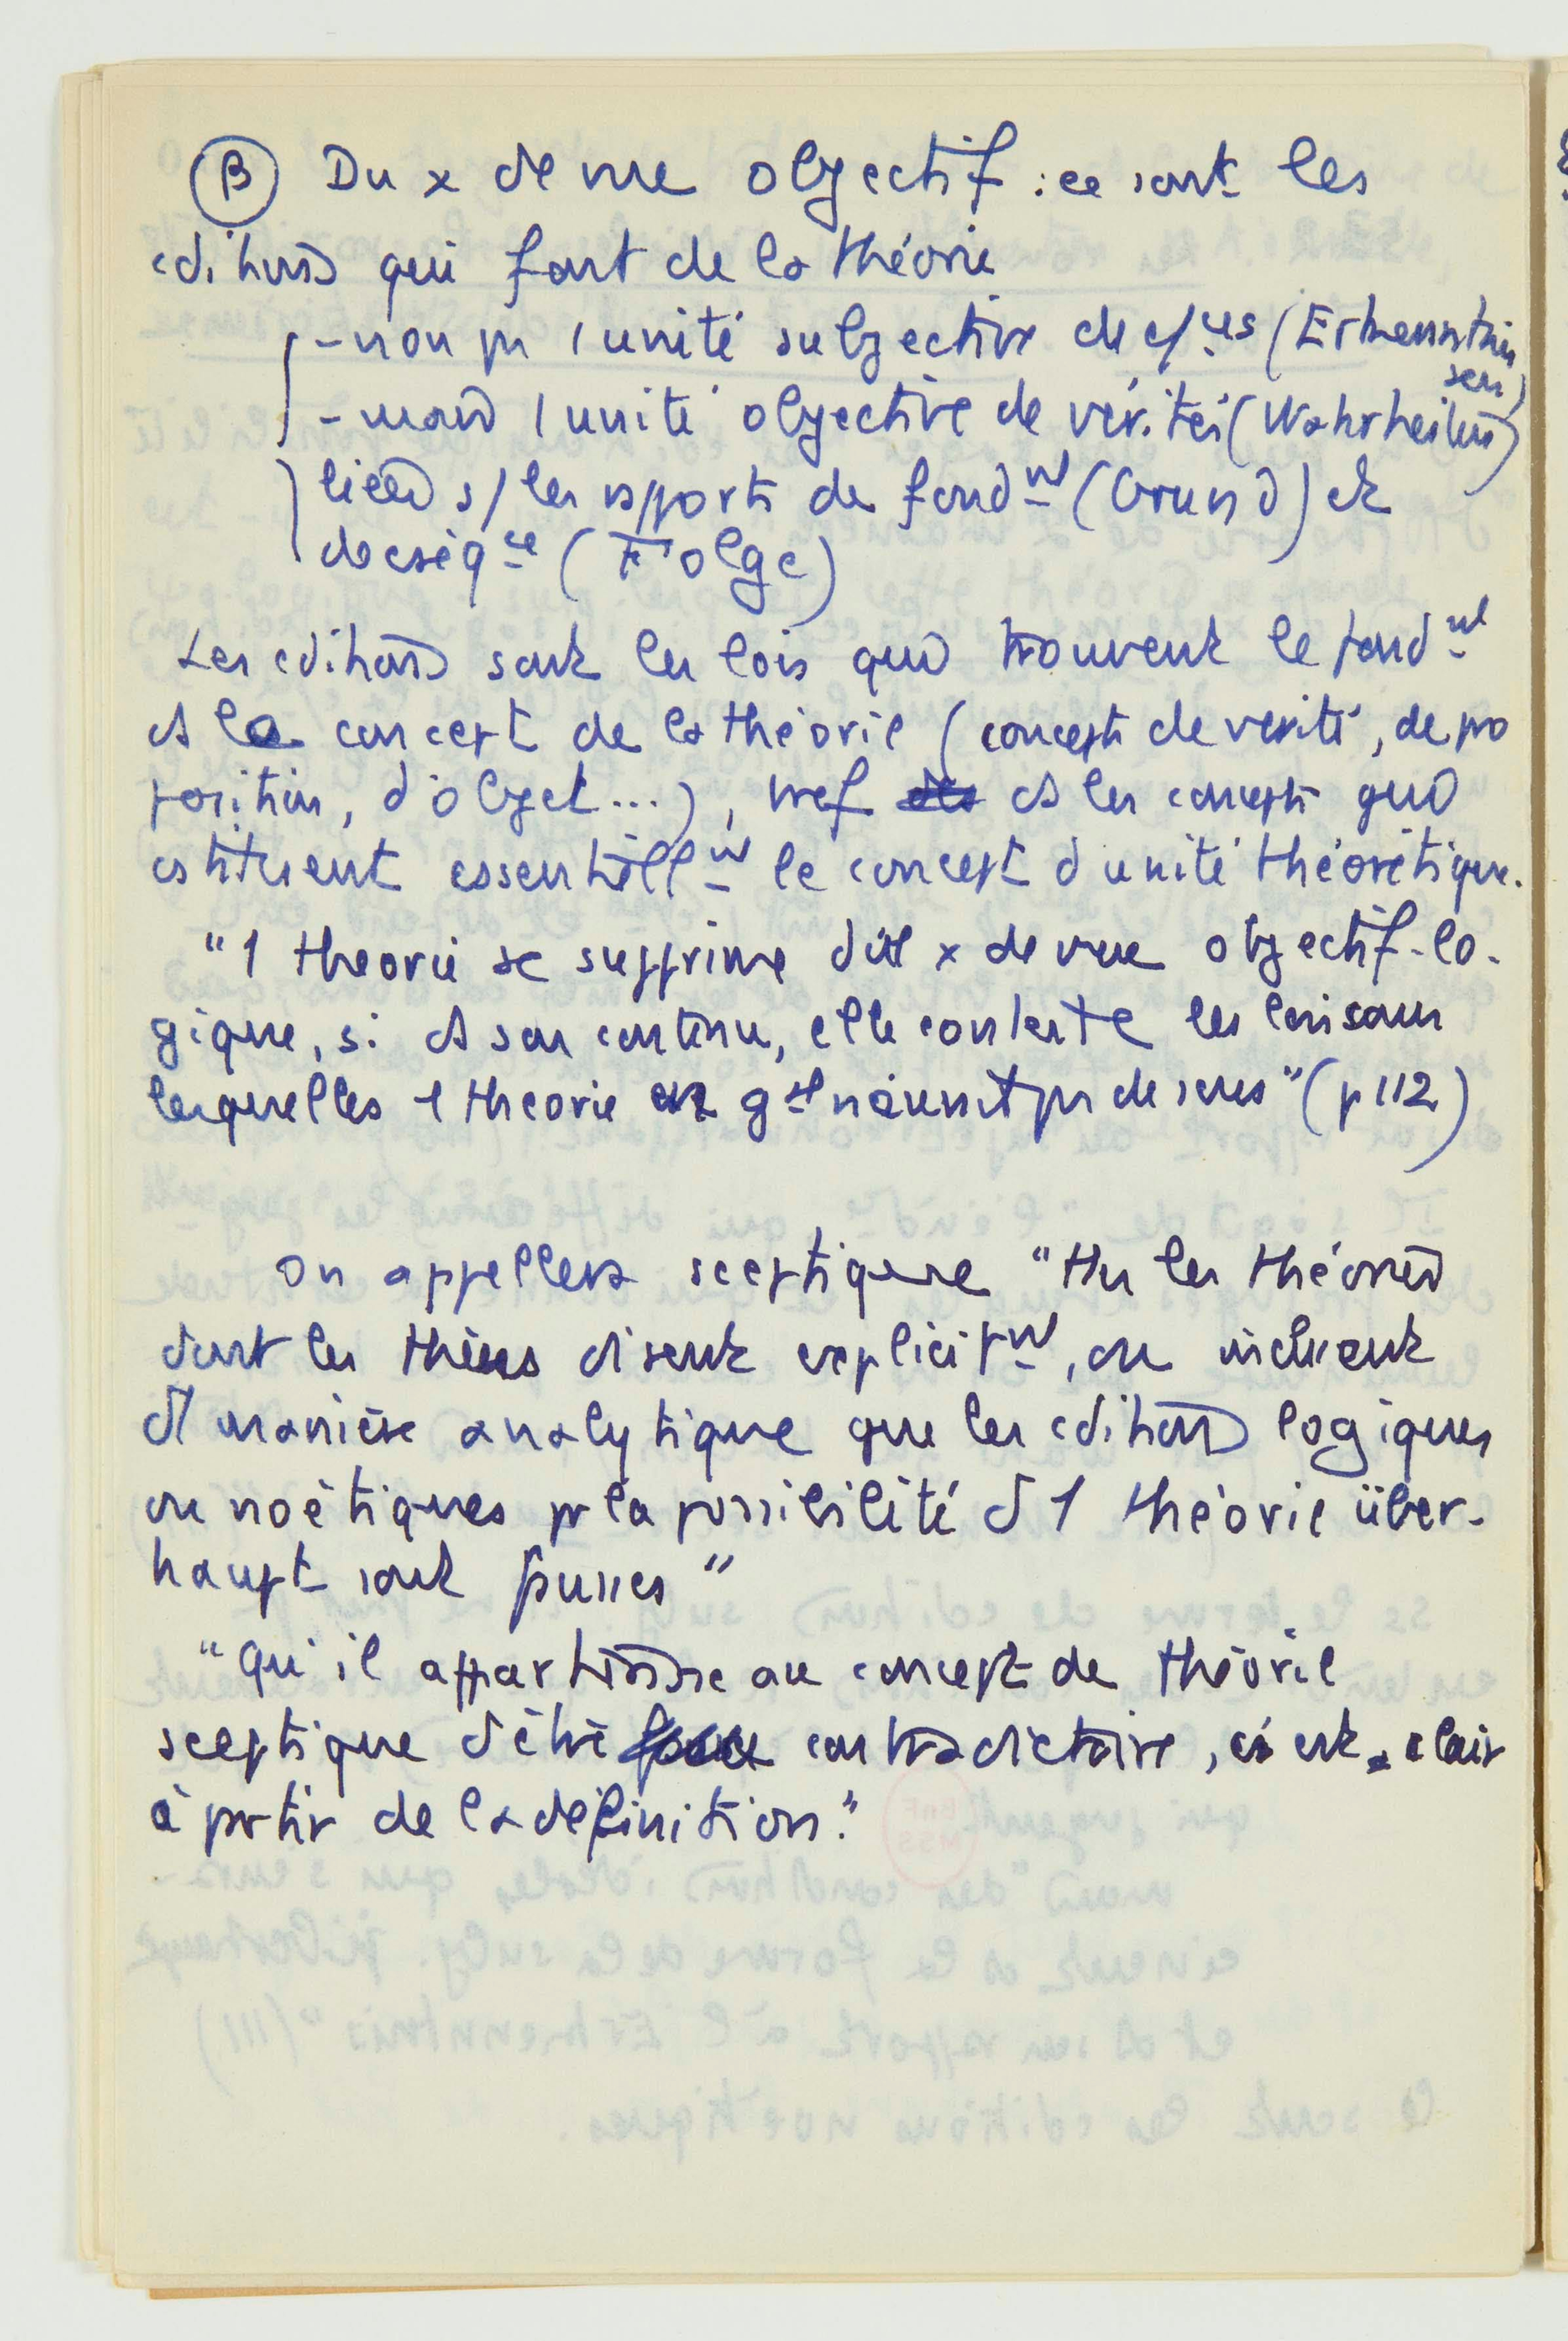 B Du x de vue objectif : ce sont les
cditions qui font de la théorie
- non pas 1 unité subjective de c/ces (Erkenntnis
sen)
- mais 1 unité objective de vérités (Wahrheiten)
liées s/ les rapports de fondmt (Grund) et
de cséqce (Folge)
Les cditions sont les lois qui trouvent le fondmt
ds le concept de la théorie (concepts de vérité, de pro
position, d'objet...), bref ds les concepts qui
cstituent essentiellmt le concept d'unité théorétique.
"1 théorie se supprime du x de vue objectif-lo-
gique, si ds son contenu, elle conteste les lois sans
lesquelles 1 théorie en gal n'aurait pas de sens" (p 112)
On appellera sceptique "ttes les théories
dont les thèses disent explicitmt, ou incluent
d1 manière analytique que les cditions logiques
ou noétiques pr la possibilité d1 théorie über-
haupt sont fausses"
"qu'il appartienne au concept de théorie
sceptique d'être contradictoire, c'est clair
à partir de la définition."